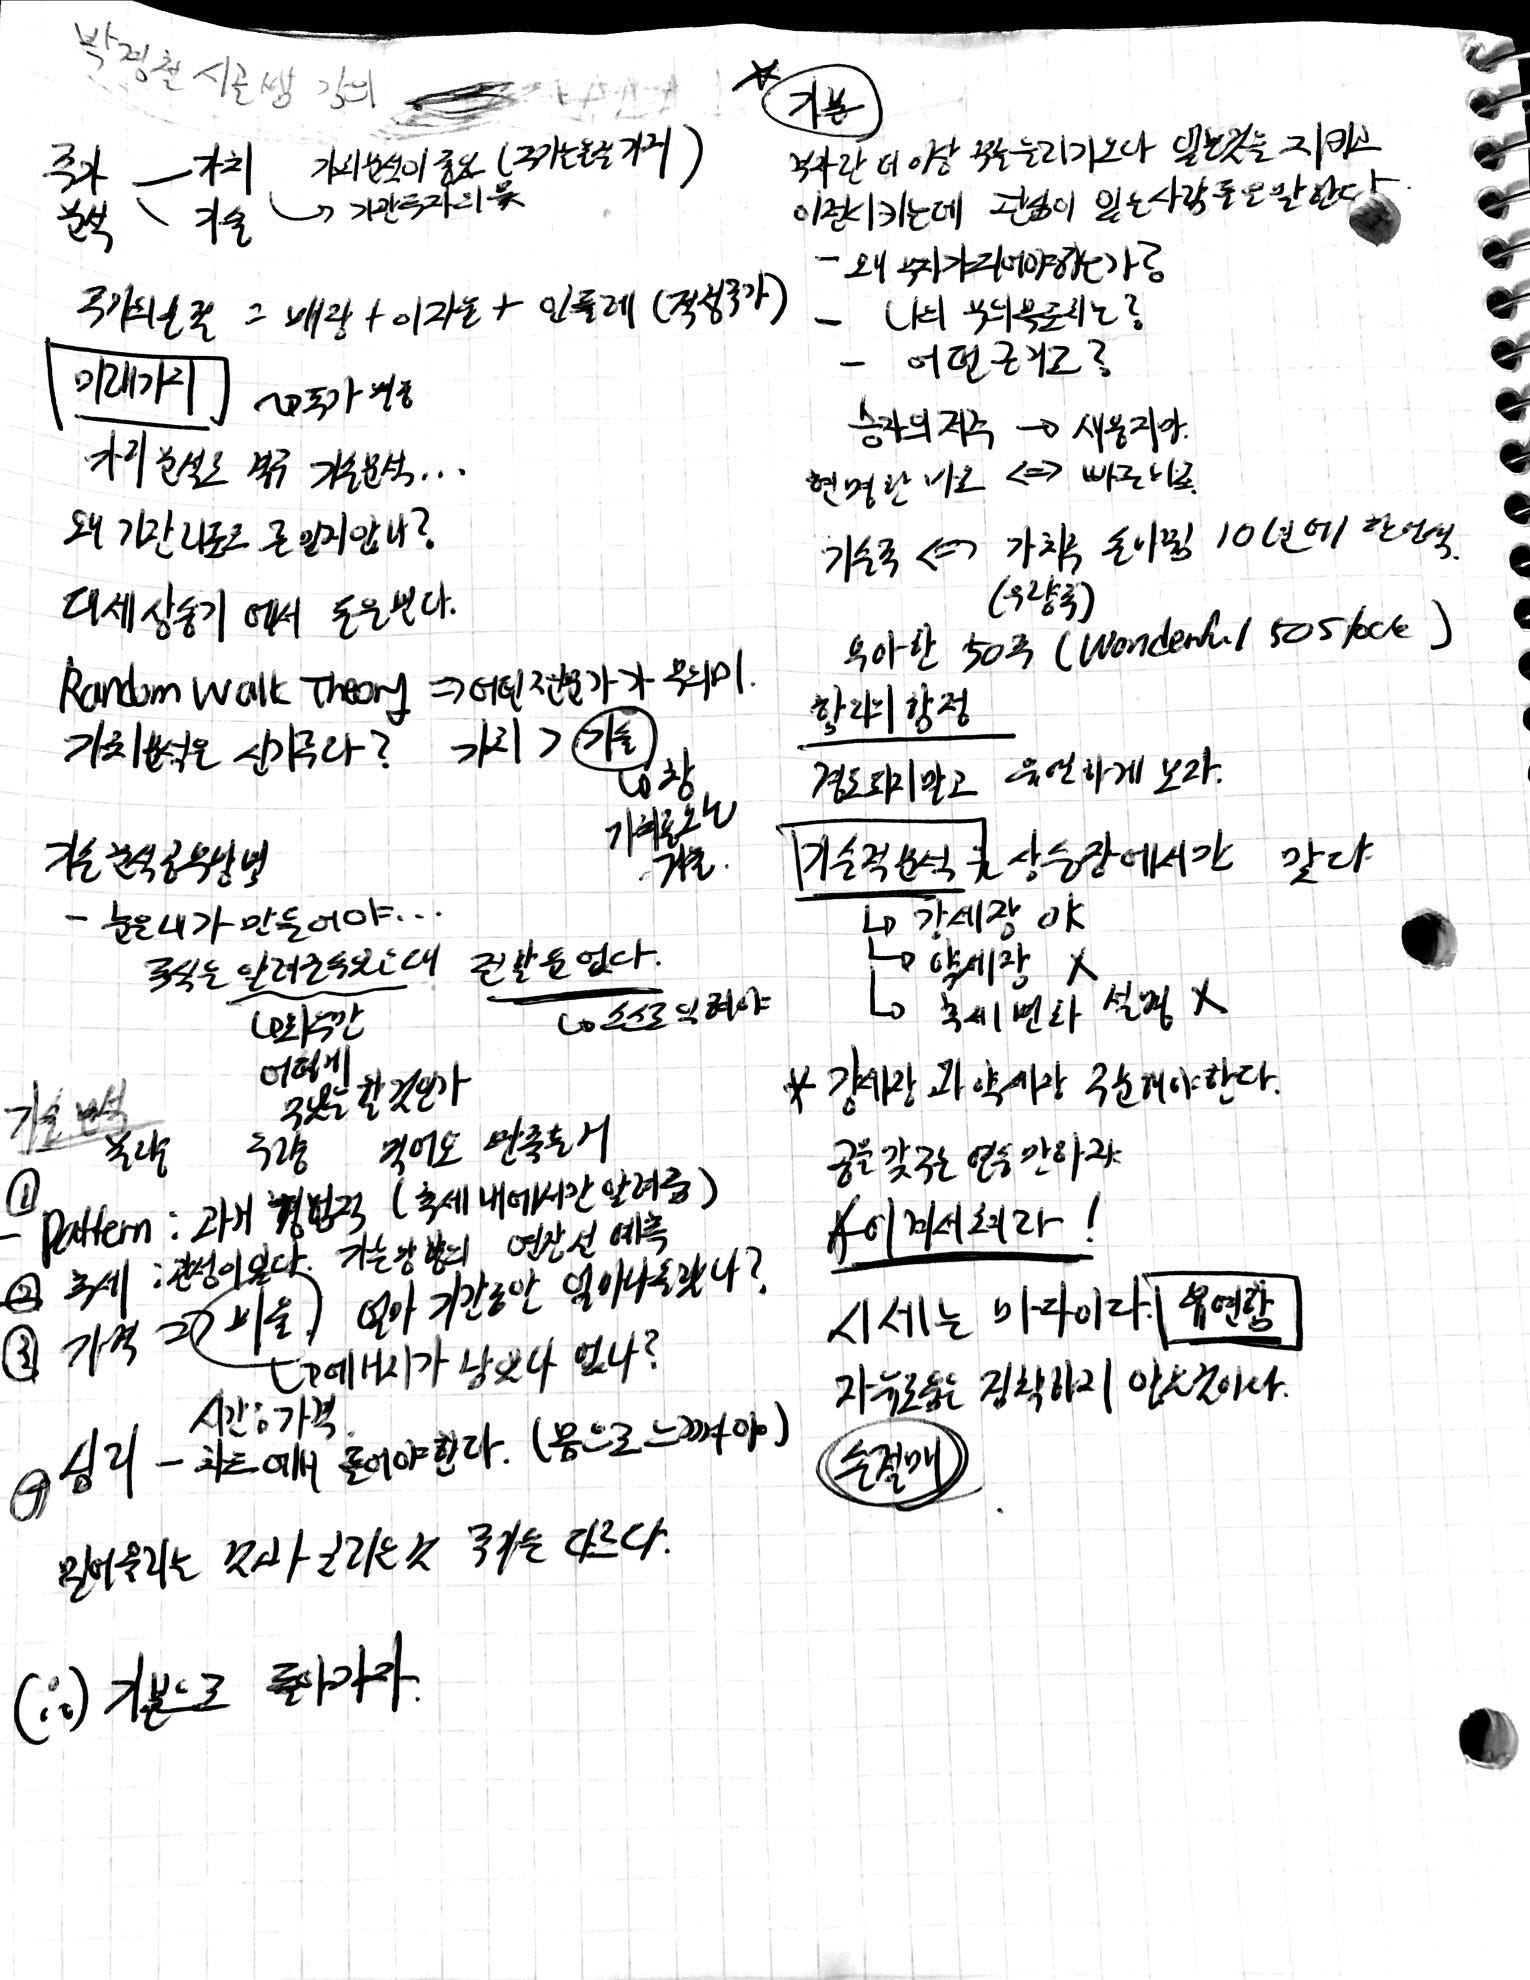 박경철 시골쌤 강의
주가 — 가치 가치분석이 중요 (주가는 가치)
분석 \ 기술 → 기관투자의 몫
주가의 = 배당 + 이자율 + 인플레 (적정주가)
미래가치 → 주가 변동
가치분석으로 기술분석...
왜 기간 맞지 않나?
대세상승기에서 돈을 번다.
Random Walk Theory ⇒ 어떤 전문가가 무의미.
가치분석은 신기루다? 가치 > 기술
→ 창
가치로 오는
기술.
기술분석공부방법
- 눈은 내가 만들어야...
주식은 알려준 대 할 수 없다.
→ 스스로 익혀야
→ 어떻게
할것인가
기술분석
불량 우량 먹어도 만족
① - Pattern : 과거 경험적 (추세 내에서만 알려줌)
② 추세 : 관성이 있다. 기술방향의 연장선 예측
③ 가격 ⇒ 비율 얼마 기간동안 얼마나 올랐나?
→ 에너지가 남았나 없나?
시간 : 가격
④ 심리 - 차트에서 들어야한다. (몸으로 느껴야)
밀어올리는 것과 올리는 것 주가는 다르다.
(∴) 기본으로 돌아가자.
* 기본
부자란 더 이상 부를 늘리기보다 있는것을 지키고
이전시키는데 관심이 있는 사람들을 말한다.
- 왜 부자가 되어야하는가?
- 나의 부의 목표치는?
- 어떤 근거로?
승자의 저주 → 새옹지마.
현명한 바보 ⇔ 빠른
기술주 ⇔ 가치주 손바뀜 10년에 한번씩.
(우량주)
우아한 50주 (Wonderful 50 Stock)
합리의 함정
경도되지말고 유연하게 보라.
기술적분석 은 상승장에서만 맞다
→ 강세장 OK
→ 약세장 X
→ 추세변화 설명 X
* 강세장과 약세장 구분해야한다.
공을 갖고 연습만하라
* 이겨서 쳐라!
시세는 바다이다. 유연함
자유로움은 집착하지 않는것이다.
손절매